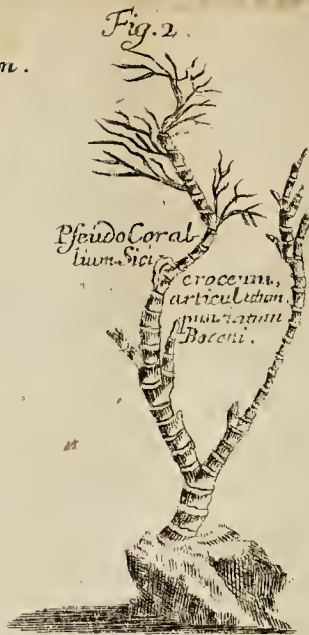 Fig. 2.
m.
Pſeudo Coral-
lium Sici
croceum,
articulatum
punctatum
Bocconi.